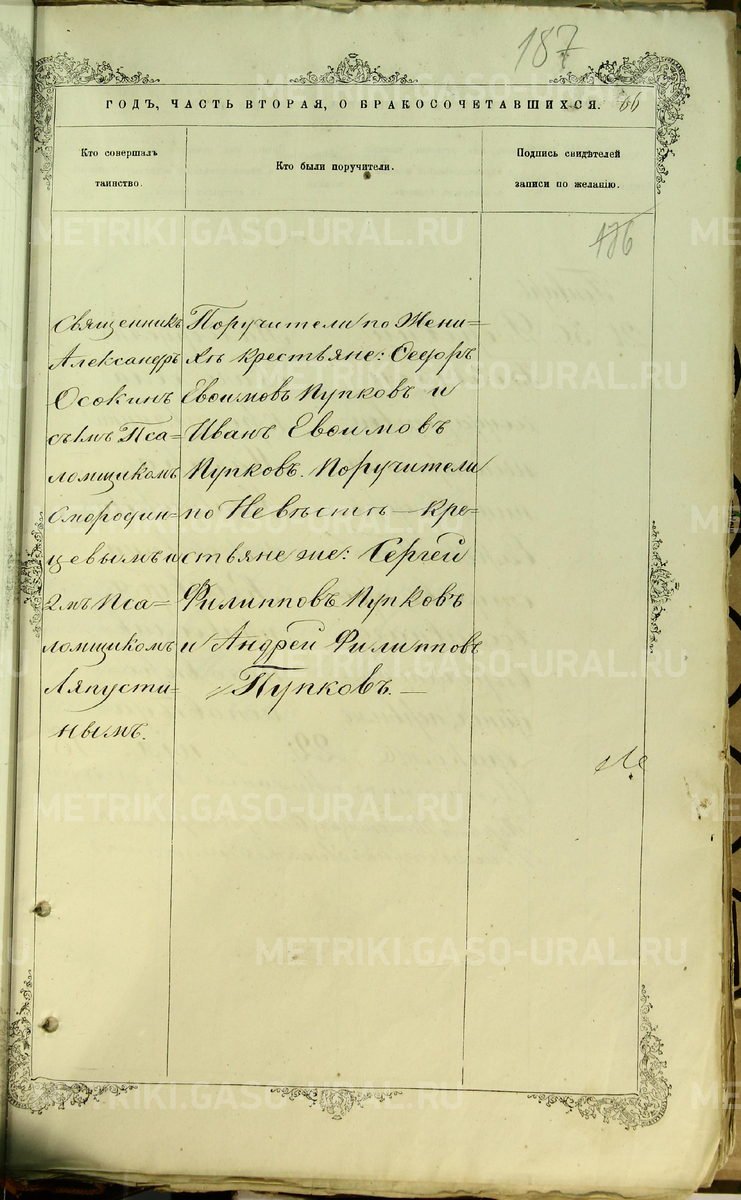 187
ГОДЪ, ЧАСТЬ ВТОРАЯ, О БРАКОСОЧЕТАВШИХСЯ.
Кто совершалъ
таинство.
Кто были поручители.
Подпись свидѣтелей
записи по желанію.
186
Священникъ
Александръ
Осокинъ
съ 1мъ Пса-
ломщикомъ
Смородин-
цевымъ и
2мъ Пса-
ломщикомъ
Ляпусти-
нымъ.
Поручители по Жени-
хѣ крестьяне: Ѳедоръ
Евѳимовъ Пупковъ и
Иванъ Евѳимовъ
Пупковъ. Поручители
по Невѣстѣ — кре-
стьяне же: Сергей
Филипповъ Пупковъ
и Андрей Филипповъ
Пупковъ. —
METRIKI.GASO-URAL.RU